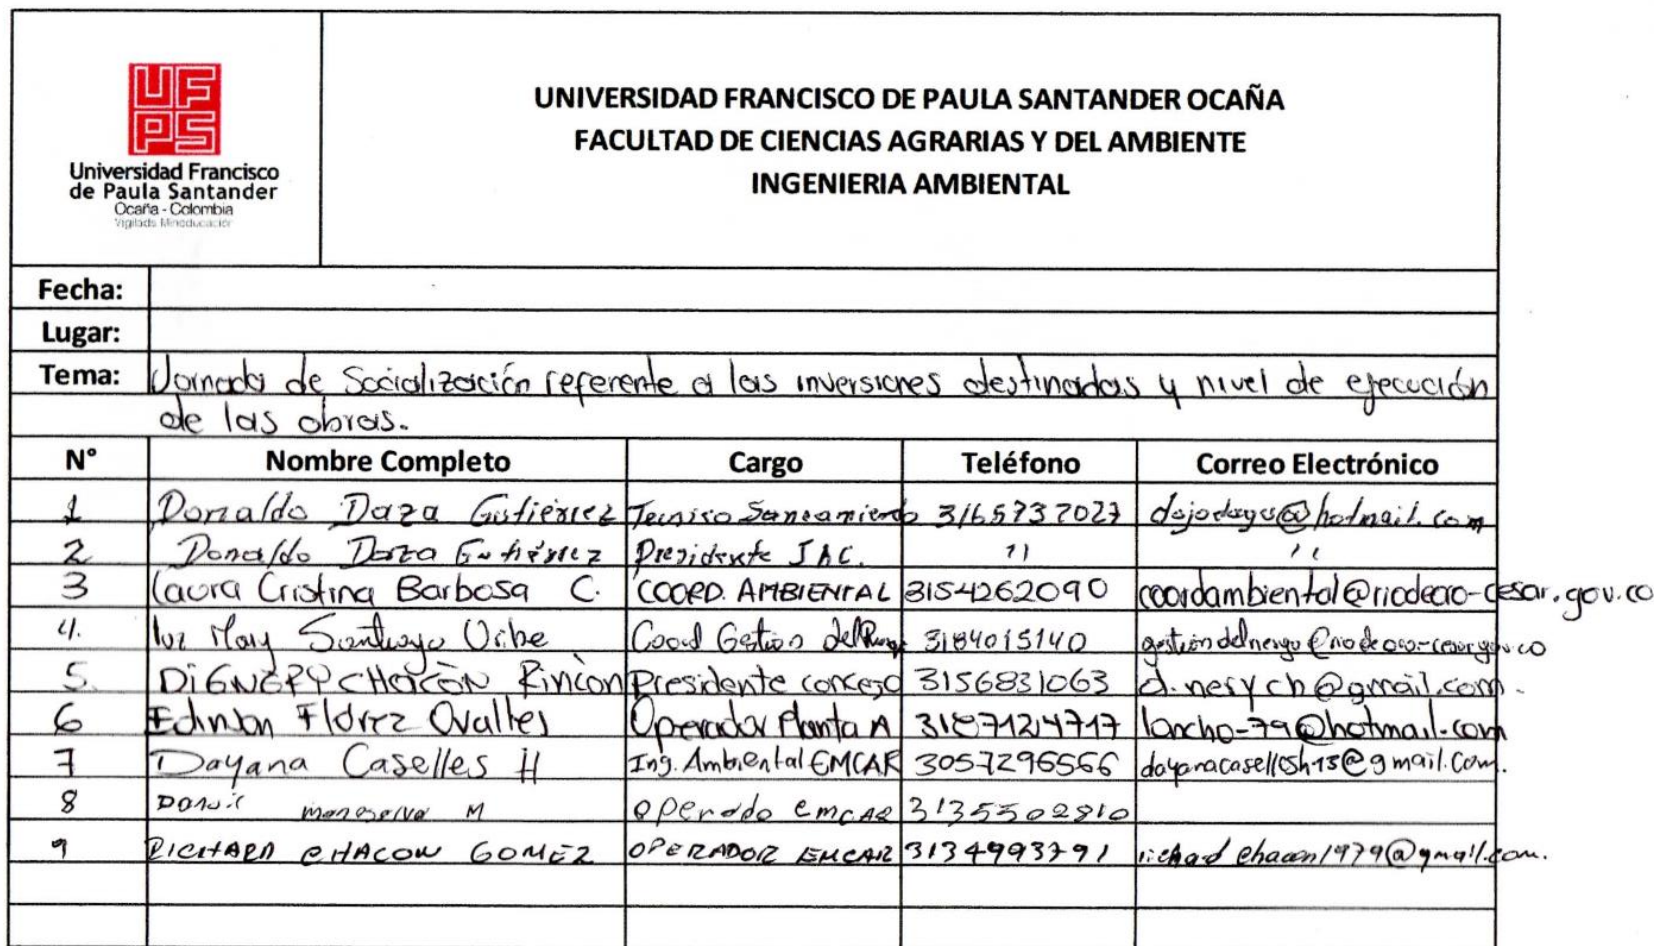 UFPS
Universidad Francisco
de Paula Santander
Ocaña - Colombia
Vigilada Mineducación
UNIVERSIDAD FRANCISCO DE PAULA SANTANDER OCAÑA
FACULTAD DE CIENCIAS AGRARIAS Y DEL AMBIENTE
INGENIERIA AMBIENTAL
Fecha:
Lugar:
Tema: Jornada de Socialización referente a las inversiones destinadas y nivel de ejecución
de las obras.
N° Nombre Completo Cargo Teléfono Correo Electrónico
1 Donaldo Daza Gutiérrez Tecnico Saneamiento 3165737027 @hotmail.com
2 Donaldo Daza Gutiérrez Presidente JAC. 11 11
3 Laura Cristina Barbosa C. COORD. AMBIENTAL 3154262090 coordambiental@riodeoro-cesar.gov.co
4. luz Mary Santiago Uribe Coord Gestion del 3184015140 @riodeoro-cesar.gov.co
5. DiGNERY CHACÓN Rincón Presidente concejo 3156831063 d.nerych@gmail.com.
6 Edinson Flórez Ovalles Operador Planta A 3187124717 loncho-79@hotmail.com
7 Dayana Caselles H Ing. Ambiental EMCAR 3057296566 dayanacasellesh13@gmail.com.
8 M operado emcar 3135502810
9 RICHARD CHACON GOMEZ OPERADOR EMCAR 3134993791 richard chacon1979@gmail.com.